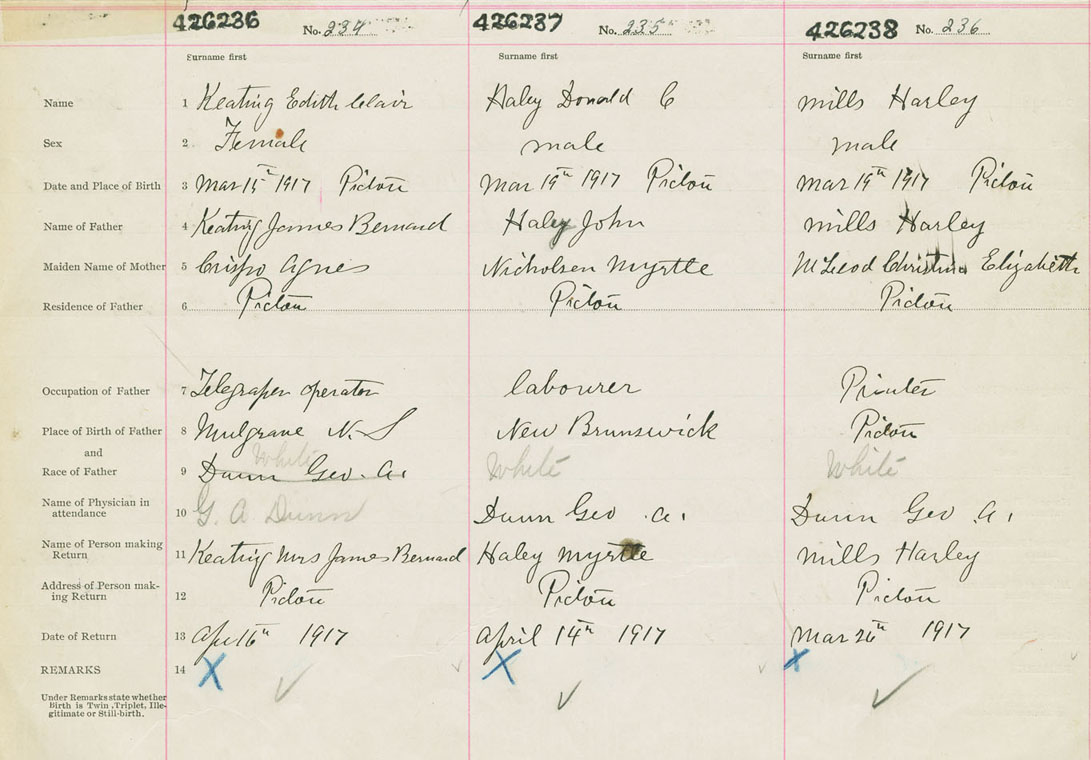 426236 No. 234 426237 No. 235 426238 No. 236
Surname first Surname first Surname first
Name 1 Keating Edith Clair Haley Donald C Mills Harley
Sex 2 Female male male
Date and Place of Birth 3 Mar 15th 1917 Pictou Mar 19th 1917 Pictou Mar 19th 1917 Pictou
Name of Father 4 Keating James Bernard Haley John Mills Harley
Maiden Name of Mother 5 Crispo Agnes Nicholsen Myrtle McLeod Christina Elizabeth
Residence of Father 6 Pictou Pictou Pictou
Occupation of Father 7 Telegraph operator labourer Printer
Place of Birth of Father 8 Mulgrave N.S New Brunswick Pictou
and
White
Race of Father 9 Dunn Geo. A. White White
Name of Physician in
attendance 10 G. A Dunn Dunn Geo. A. Dunn Geo. A.
Name of Person making
Return 11 Keating Mrs James Bernard Haley Myrtle Mills Harley
Address of Person mak-
ing Return 12 Pictou Pictou Pictou
Date of Return 13 Apr 16th 1917 April 14th 1917 Mar 26th 1917
REMARKS 14 X X X
Under Remarks state whether
Birth is Twin, Triplet, Ille-
gitimate or Still-birth.